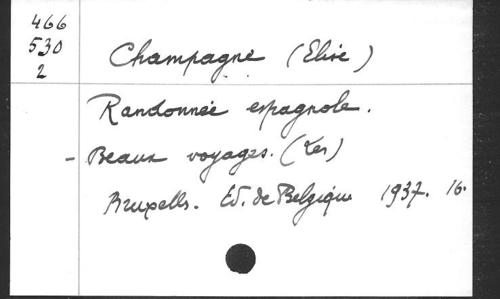 466
530
2
Champagne (Elise)
Randonnée espagnole.
- Beaux voyages. (Les)
Bruxells. Ed. de Belgique 1937. 16.